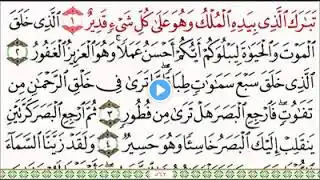 تَبَٰرَكَ ٱلَّذِى بِيَدِهِ ٱلْمُلْكُ وَهُوَ عَلَىٰ كُلِّ شَىْءٍ قَدِيرٌ ١ ٱلَّذِى خَلَقَ
ٱلْمَوْتَ وَٱلْحَيَوٰةَ لِيَبْلُوَكُمْ أَيُّكُمْ أَحْسَنُ عَمَلًا وَهُوَ ٱلْعَزِيزُ ٱلْغَفُورُ ٢
ٱلَّذِى خَلَقَ سَبْعَ سَمَٰوَٰتٍ طِبَاقًا تَرَىٰ فِى خَلْقِ ٱلرَّحْمَٰنِ مِن
تَفَٰوُتٍ فَٱرْجِعِ ٱلْبَصَرَ هَلْ تَرَىٰ مِن فُطُورٍ ٣ ثُمَّ ٱرْجِعِ ٱلْبَصَرَ كَرَّتَيْنِ
يَنقَلِبْ إِلَيْكَ ٱلْبَصَرُ خَاسِئًا وَهُوَ حَسِيرٌ ٤ وَلَقَدْ زَيَّنَّا ٱلسَّمَآءَ
٥٦٢